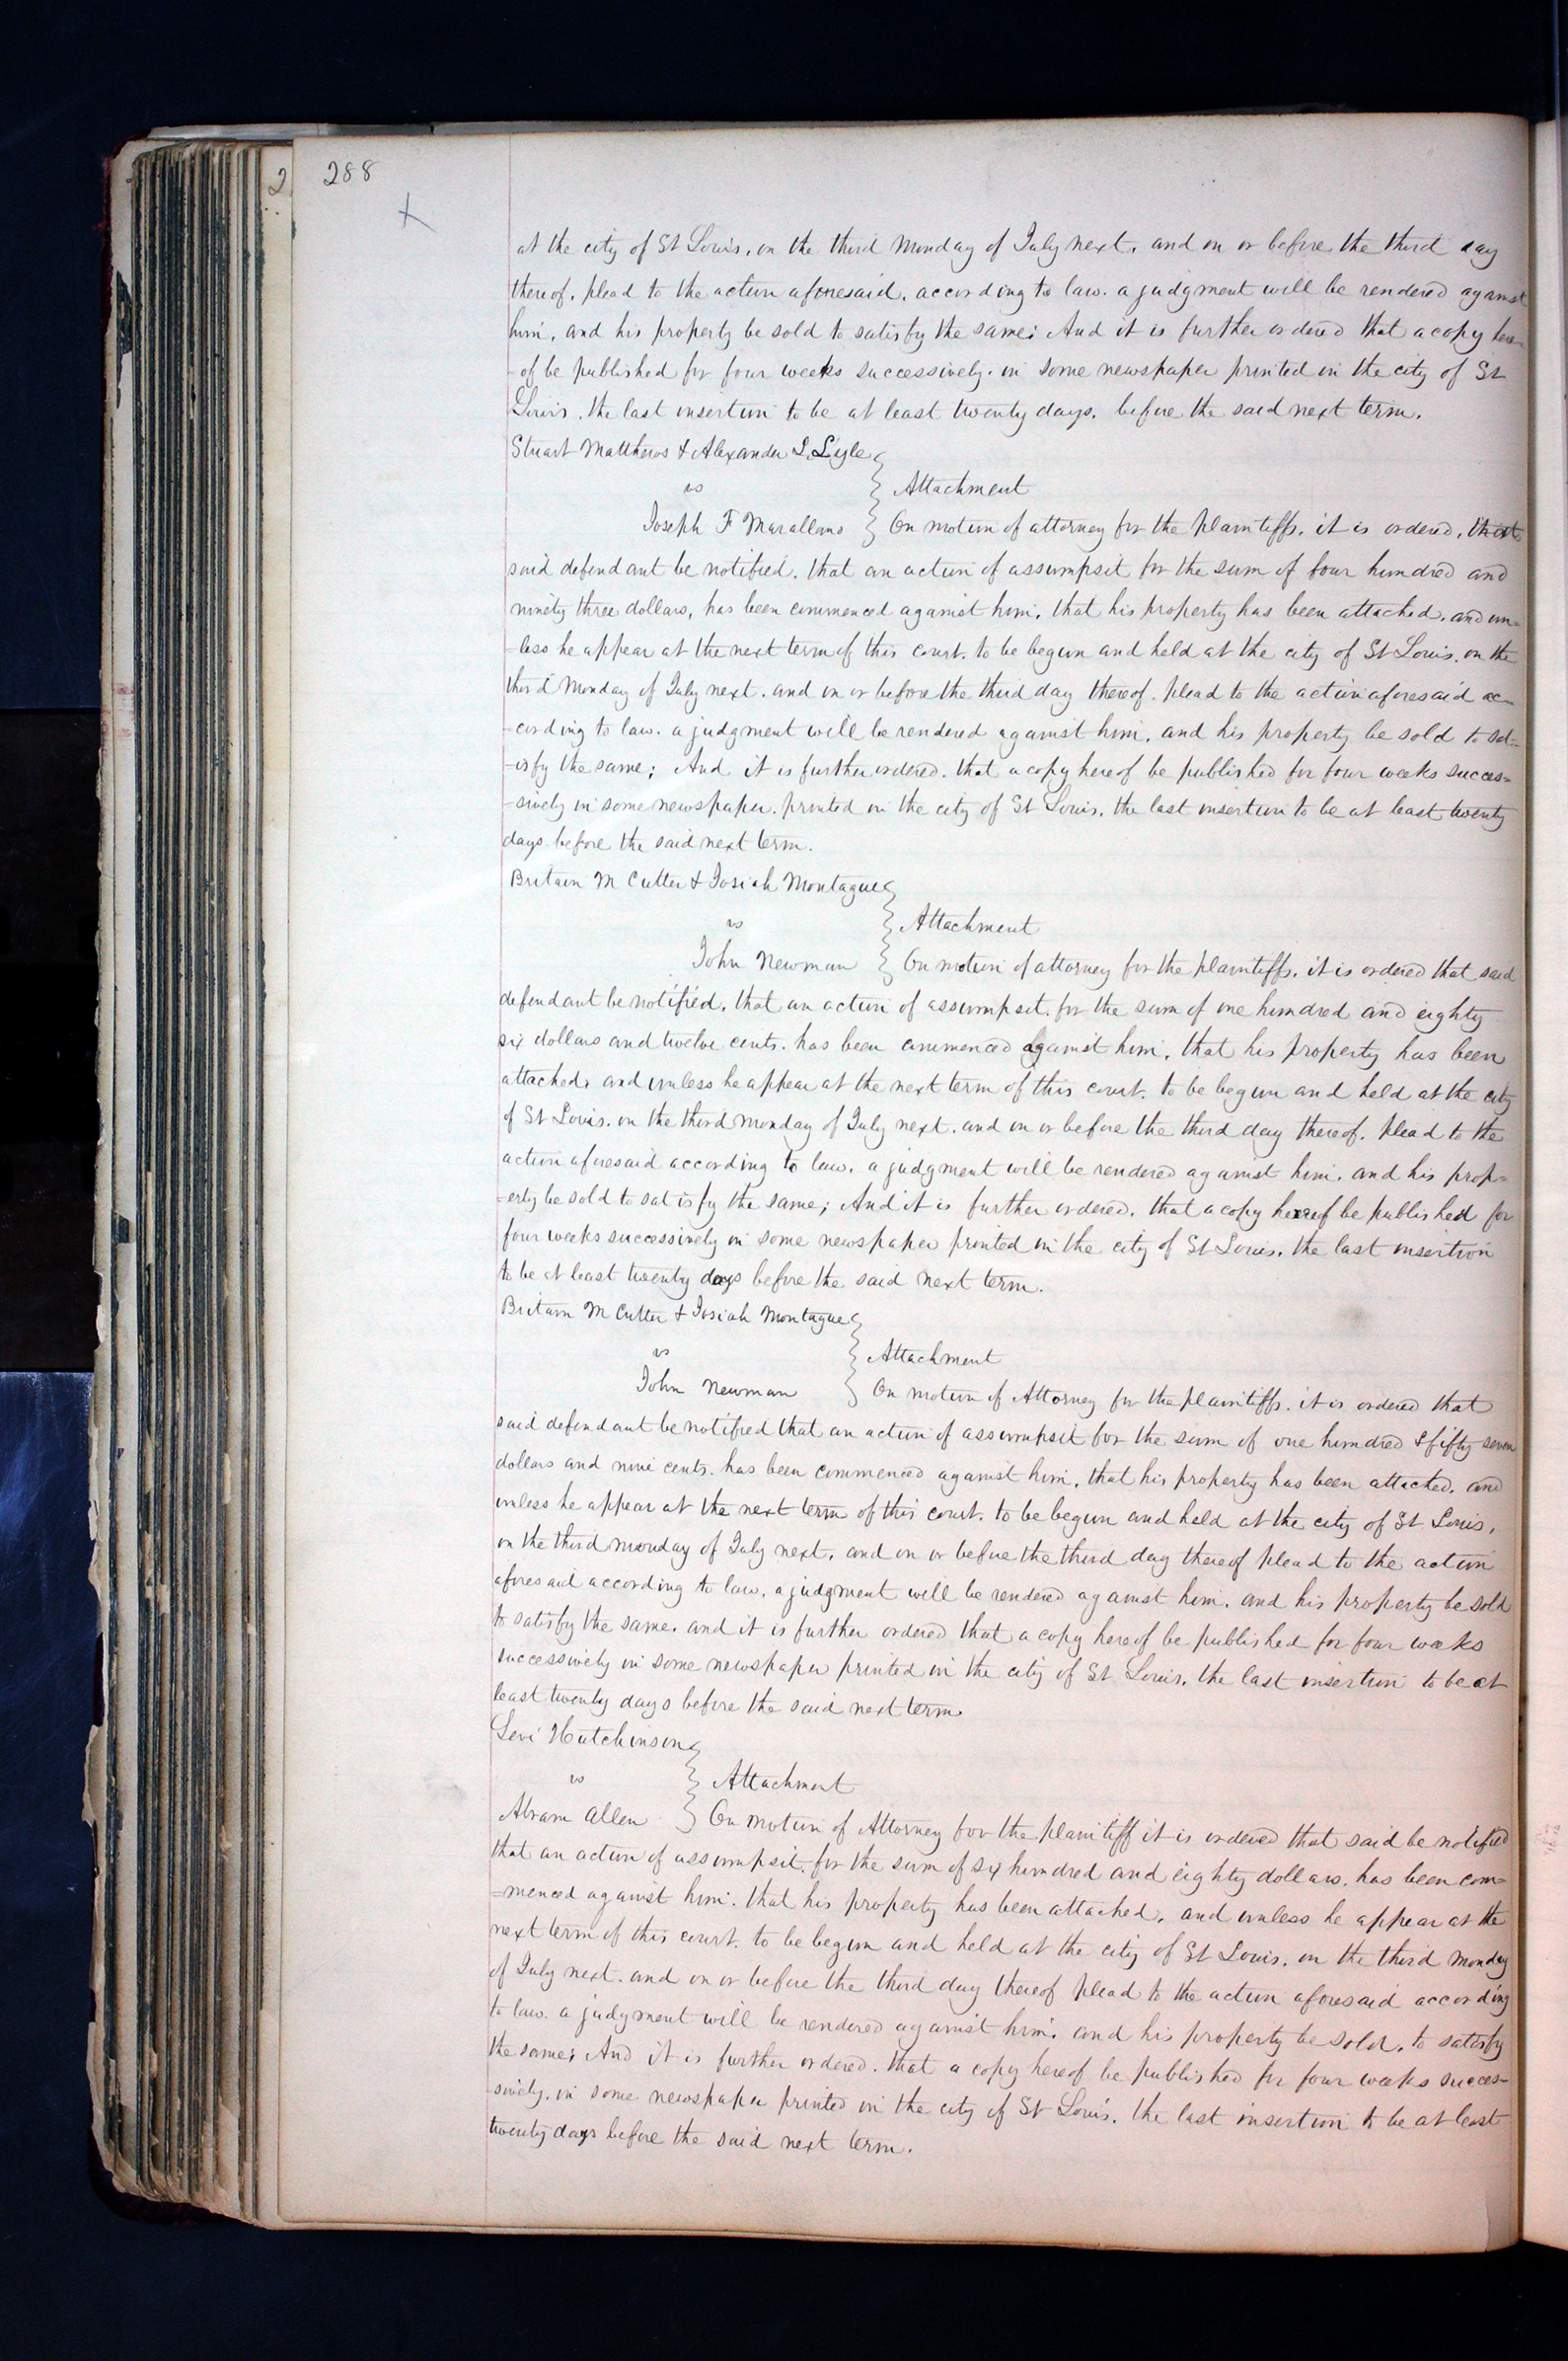 288
2
at the city of St Louis, on the third Monday of July next, and on or before the third day
thereof, plead to the action aforesaid, according to law. a judgment will be rendered against
him, and his property be sold to satisfy the same; And it is further ordered that a copy here=
-of be published for four weeks successively. in some newspaper printed in the city of St
Louis, the last insertion to be at least twenty days, before the said next term.
Stuart Matthews & Alexander L. Lyle
vs
Attachment
Joseph F On motion of attorney for the plaintiffs, it is ordered, that
said defendant be notified, that an action of assumpsit for the sum of four hundred and
ninety three dollars, has been commenced against him, that his property has been attached, and un=
-less he appear at the next term of this court, to be begun and held at the city of St Louis, on the
third Monday of July next, and on or before the third day thereof, plead to the action aforesaid ac=
-cording to law, a judgment will be rendered against him, and his property be sold to sat=
-isfy the same; And it is further ordered, that a copy hereof be published for four weeks succes=
-sively in some newspaper, printed in the city of St Louis, the last insertion to be at least twenty
days before the said next term.
Britain M Cutter & Josiah Montague
vs
Attachment
John Newman On motion of attorney for the plaintiffs, it is ordered that said
defendant be notified, that an action of assumpsit, for the sum of one hundred and eighty
six dollars and twelve cents, has been commenced against him, that his property has been
attached, and unless he appear at the next term of this court, to be begun and held at the city
of St Louis, on the third Monday of July next, and on or before the third day thereof, plead to the
action aforesaid according to law, a judgment will be rendered against him, and his prop=
-erty be sold to satisfy the same; And it is further ordered, that a copy hereof be published for
four weeks successively in some newspaper printed in the city of St Louis, the last insertion
to be at least twenty days before the said next term.
Britain M Cutter & Josiah Montague
vs
Attachment
John Newman On motion of Attorney for the plaintiffs, it is ordered that
said defendant be notified that an action of assumpsit for the sum of one hundred & fifty seven
dollars and nine cents, has been commenced against him, that his property has been attached, and
unless he appear at the next term of this court, to be begun and held at the city of St Louis,
on the third monday of July next, and on or before the third day thereof plead to the action
aforesaid according to law, a judgment will be rendered against him, and his property be sold
to satisfy the same, and it is further ordered that a copy hereof be published for four weeks
successively in some newspaper printed in the city of St Louis, the last insertion to be at
least twenty days before the said next term.
Levi Hutchinson
vs
Attachment
Abram Allen On motion of Attorney for the plaintiff it is ordered that said be notified
that an action of assumpsit, for the sum of six hundred and eighty dollars, has been com=
=menced against him, that his property has been attached, and unless he appear at the
next term of this court, to be begun and held at the city of St Louis, on the third monday
of July next, and on or before the third day thereof plead to the action aforesaid according
to law, a judgment will be rendered against him, and his property be sold, to satisfy
the same; And it is further ordered, that a copy hereof be published for four weeks succes=
-sively, in some newspaper printed in the city of St Louis, the last insertion to be at least
twenty days before the said next term.